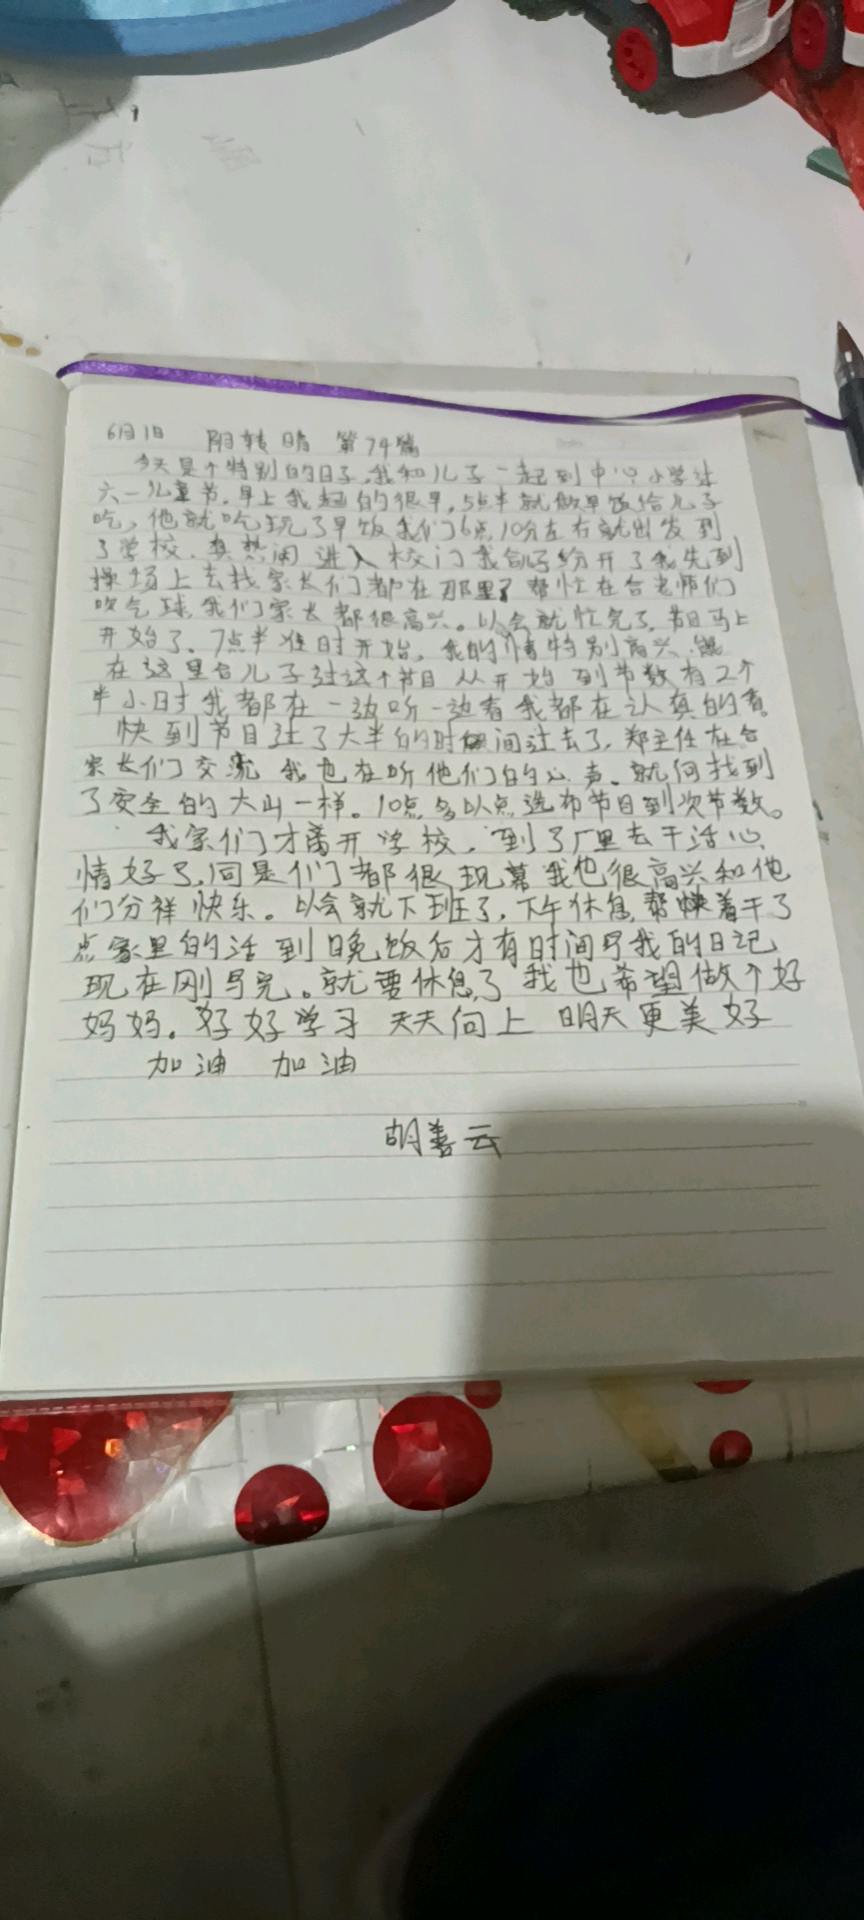 6月1日 阴转晴 第74篇
今天是个特别的日子,我和儿子一起到中心小学过
六一儿童节。早上我起的很早,5点半就做早饭给儿子
吃,他就吃玩了早饭我们6点10分左右就出发到
了学校。真热闹 进入校门我台儿子纷开了我先到
操场上去找家长们都在那里了 帮忙在台老师们
吹气球,我们家长都很高兴。以会就忙完了,节目马上
开始了。7点半准时开始。我的情特别高兴
在这里台儿子过这个节目从开始到节数有2个
半小时我都在一边听一边看我都在认真的看。
快到节目过了大半的时间过去了,郑主任在台
家长们交流 我也在听他们的心声。就何找到
了安全的大山一样。10点多以点选布节目到次节数。
我家们才离开学校,到了厂里去干活心
情好了,同是们都很现慕我他很高兴和他
们分祥快乐。以会就下班了,下午休息,帮快着干了
点家里的活到晚饭后才有时间写我的日记
现在刚写完。就要休息了 我也希望做个好
妈妈。好好学习 天天向上 明天更美好
加油 加油
胡善云